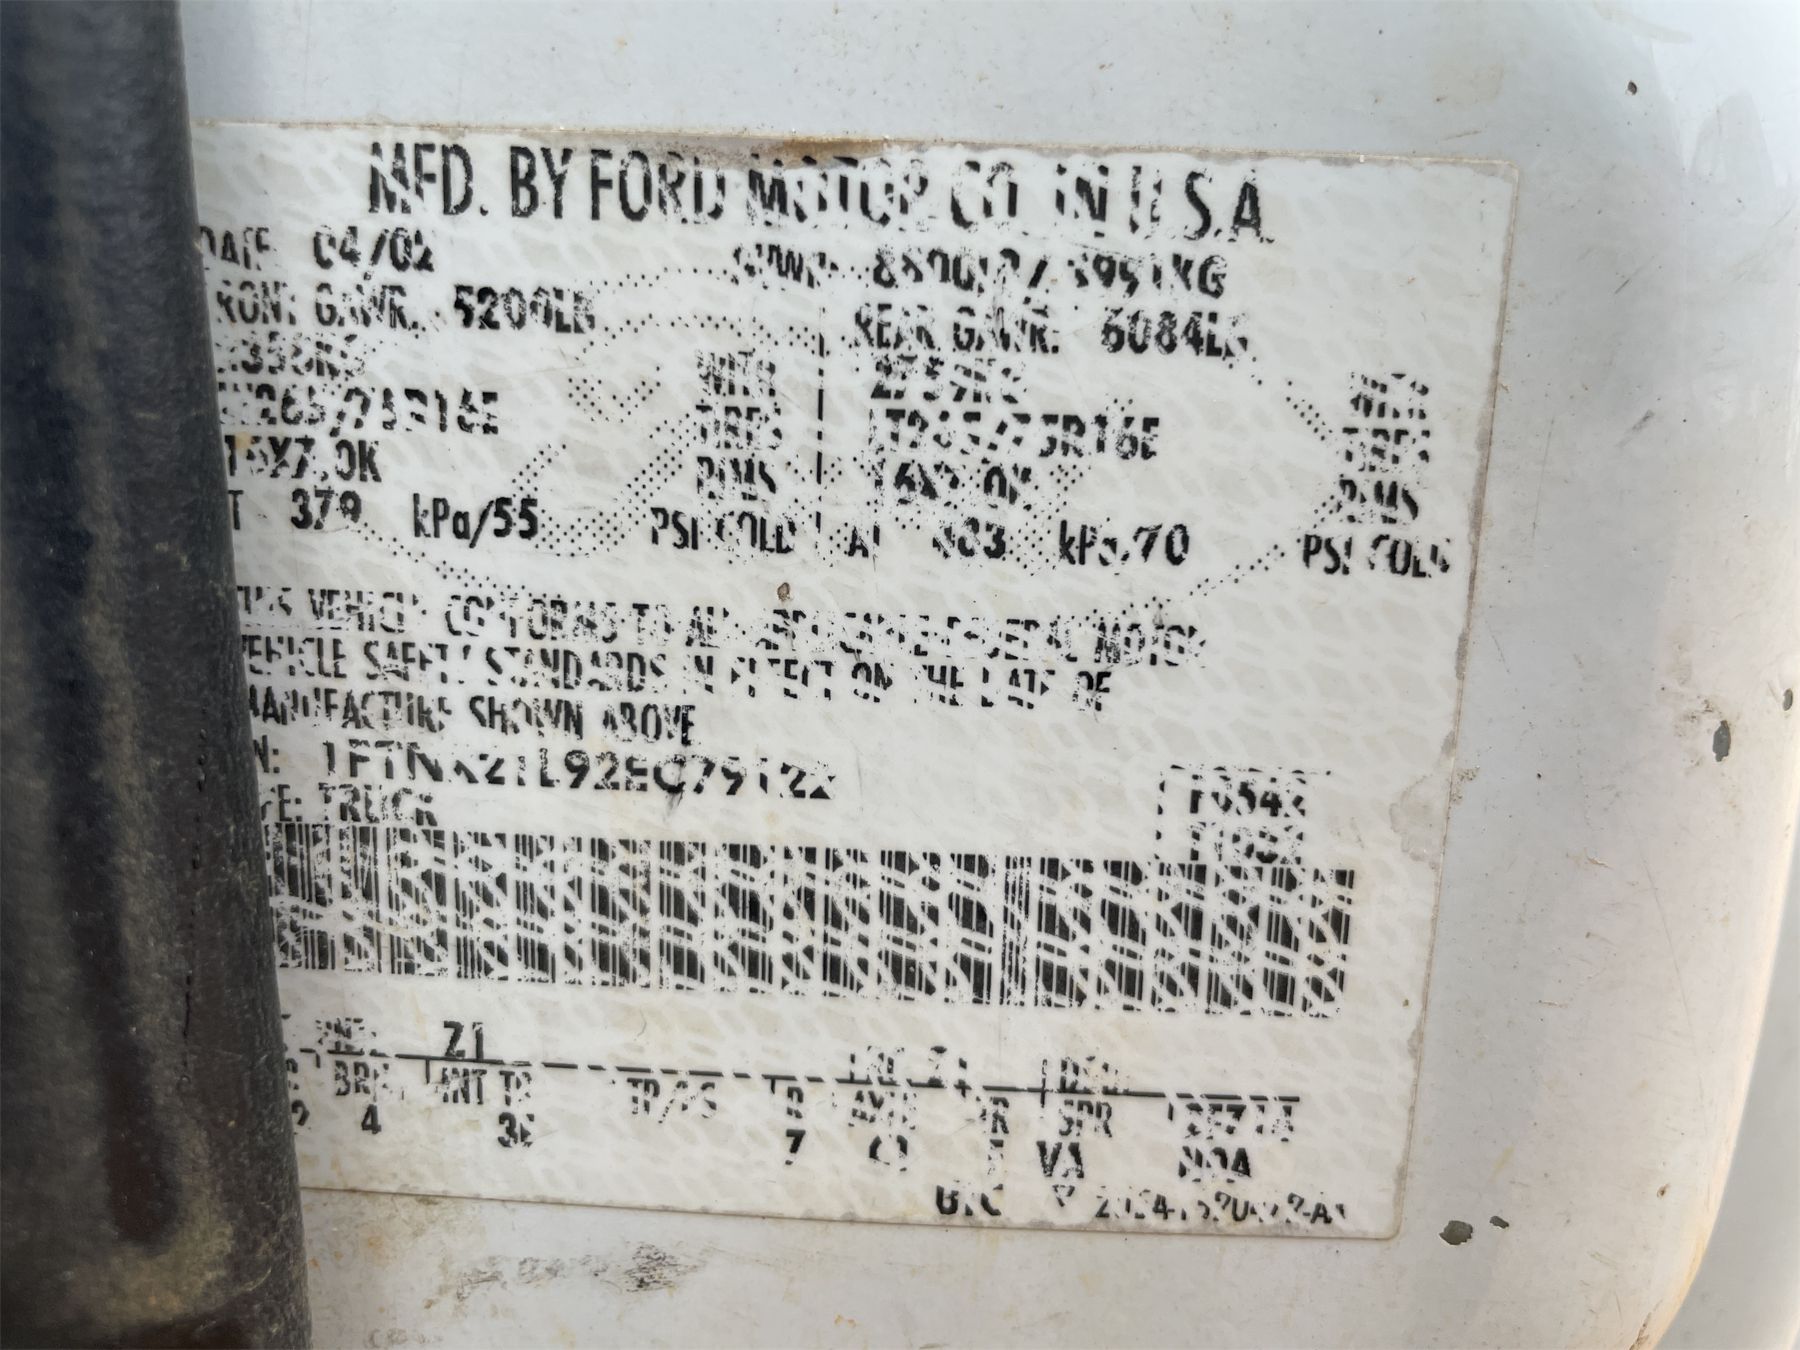 MFD. BY FORD MOTOR CO. IN U.S.A.
DATE: 04/02 GVWR: 8800LB/ 3991KG
FRONT GAWR: 5200LB REAR GAWR: 6084LB
WITH 2759KG WITH
265/75R16E TIRES LT265/75R16E TIRES
16X7.0K RIMS 16X7.0K RIMS
AT 379 kPa/55 PSI COLD AT 483 kPa/70 PSI COLD
THIS VEHICLE CONFORMS TO ALL APPLICABLE FEDERAL MOTOR
VEHICLE SAFETY STANDARDS IN EFFECT ON THE DATE OF
MANUFACTURE SHOWN ABOVE
VIN: 1FTNX21L92EC79122
TYPE: TRUCK
Z1
BRK INT TR TP/PS R AXLE TR SPR
2 4 7 VA